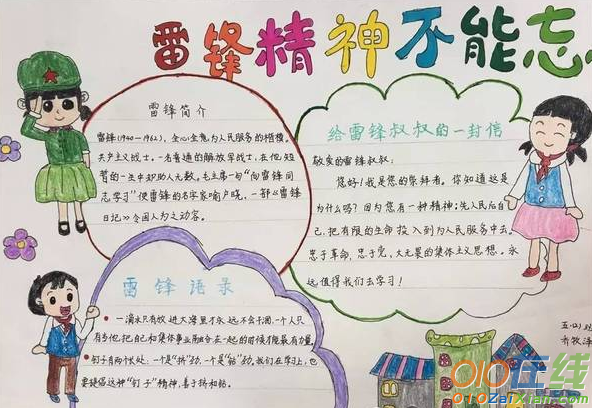 雷锋精神不能忘
雷锋简介
雷锋(1940-1962),全心全意为人民服务的楷模,
共产主义战士。一名普通的解放军战士,在他短
暂的一生中却助人无数。毛主席一句"向雷锋同
志学习"使雷锋的名字家喻户晓,一部《雷锋
日记》令国人为之动容。
给雷锋叔叔的一封信
敬爱的雷锋叔叔:
您好!我是您的崇拜者。你知道这是
为什么吗?因为您有一种精神:先人民后自
己,把有限的生命投入到为人民服务中去。
忠于革命,忠于党,大无畏的集体主义思想。永
远值得我们去学习!
雷锋语录
一滴水只有放进大海里才永远不会干涸,一个人只
有当他把自己和集体事业融合在一起的时候才能最有力量。
钉子有两个长处,一个是"挤"劲,一个是"钻"劲,我们在学习上,也
要提倡这种"钉子"精神,善于挤和钻。
010在线
010ZaiXian.com